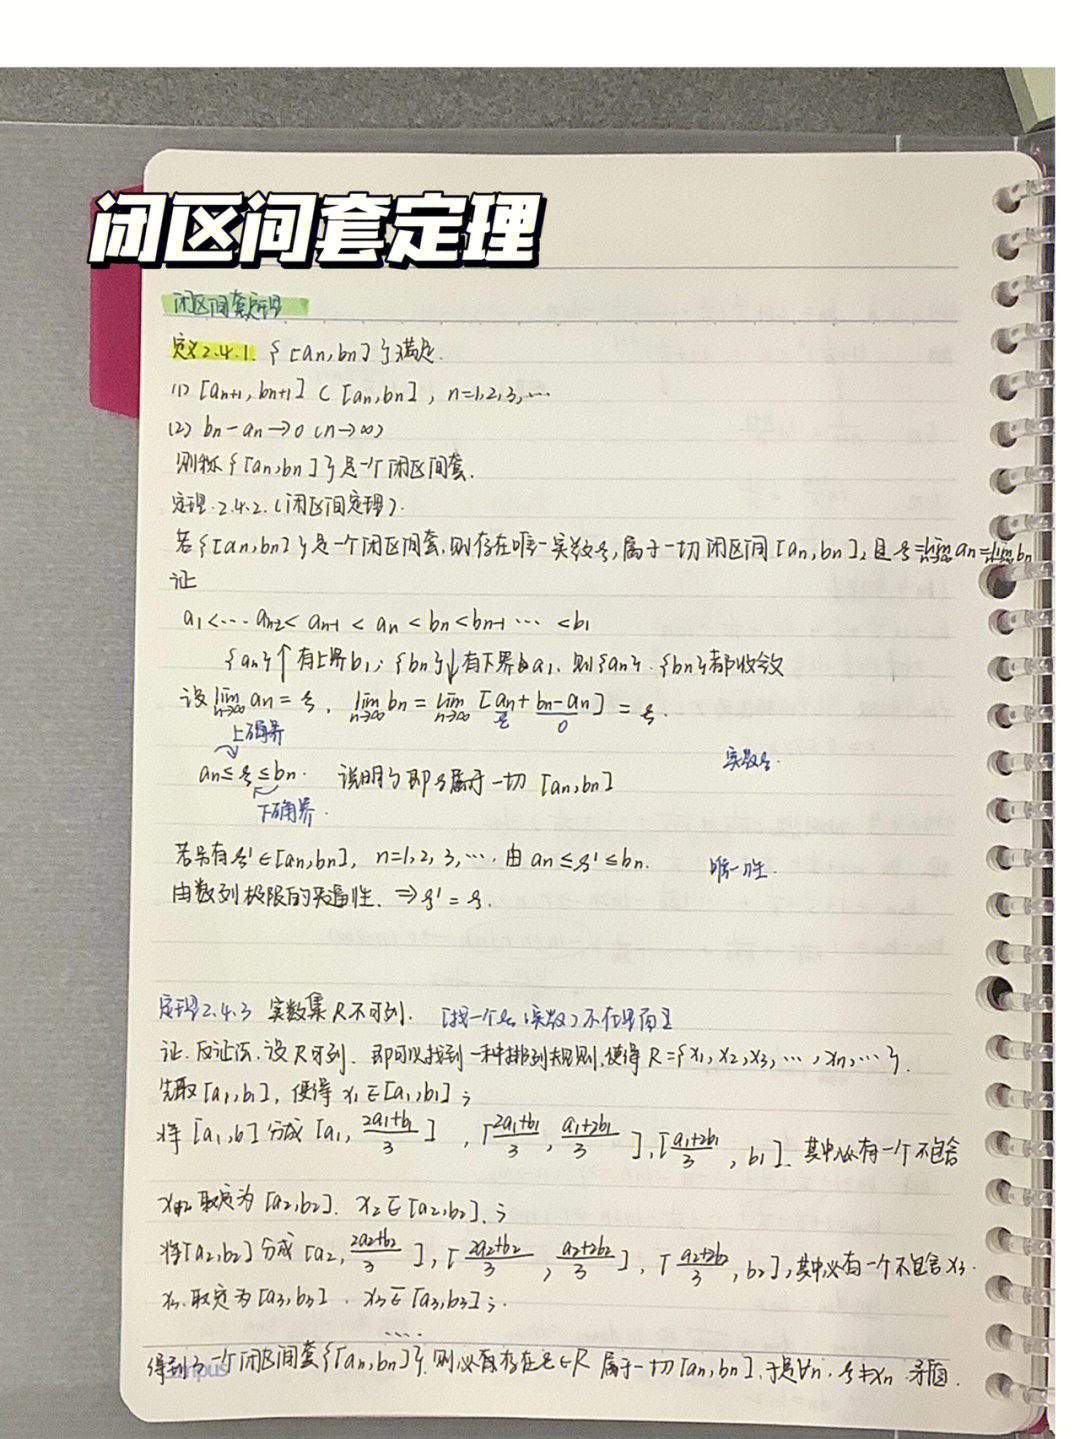 闭区间套定理
闭区间套定理
定义2.4.1. {[an,bn]}满足.
(1) [an+1, bn+1] ⊂ [an,bn], n=1,2,3,…
(2) bn-an→0 (n→∞)
则称{[an,bn]}是一个闭区间套.
定理.2.4.2.(闭区间定理).
若{[an,bn]}是一个闭区间套,则存在唯一实数ξ,属于一切闭区间[an,bn],且ξ=lim an=lim bn
证
a1<…an-2< an-1 < an < bn<bn-1 … <b1
{an}↑有上界b1; {bn}↓有下界a1. 则{an}.{bn}都收敛
设lim n→∞ an=ξ, lim n→∞ bn=lim n→∞ [an+bn-an]=ξ.
ξ 0
上确界
实数ξ.
an≤ξ≤bn. 说明了即ξ属于一切 [an,bn]
下确界.
若另有ξ'∈[an,bn], n=1,2,3,…. 由 an≤ξ'≤bn. 唯一性.
由数列极限的夹逼性. ⇒ξ'=ξ.
定理2.4.3 实数集R不可列. [找一个ξ(实数)不在里面]
证.反证法.设R可列. 即可以找到一种排列规则,使得R={x1,x2,x3,…,xn,…}.
先取[a1,b1], 使得 x1∉[a1,b1];
将[a1,b1]分成[a1, 2a1+b1/3], [2a1+b1/3, a1+2b1/3],[a1+2b1/3, b1]. 其中必有一个不包含
x2 取定为[a2,b2]. x2∉[a2,b2].;
将[a2,b2]分成[a2, 2a2+b2/3], [2a2+b2/3, a2+2b2/3], [a2+2b2/3, b2],其中必有一个不包含x3.
x3.取定为[a3,b3]. x3∉[a3,b3];.
….
得到了一个闭区间套{[an,bn]}.则必存在ξ∈R 属于一切[an,bn].于是∀n.ξ≠xn.矛盾.
Campus